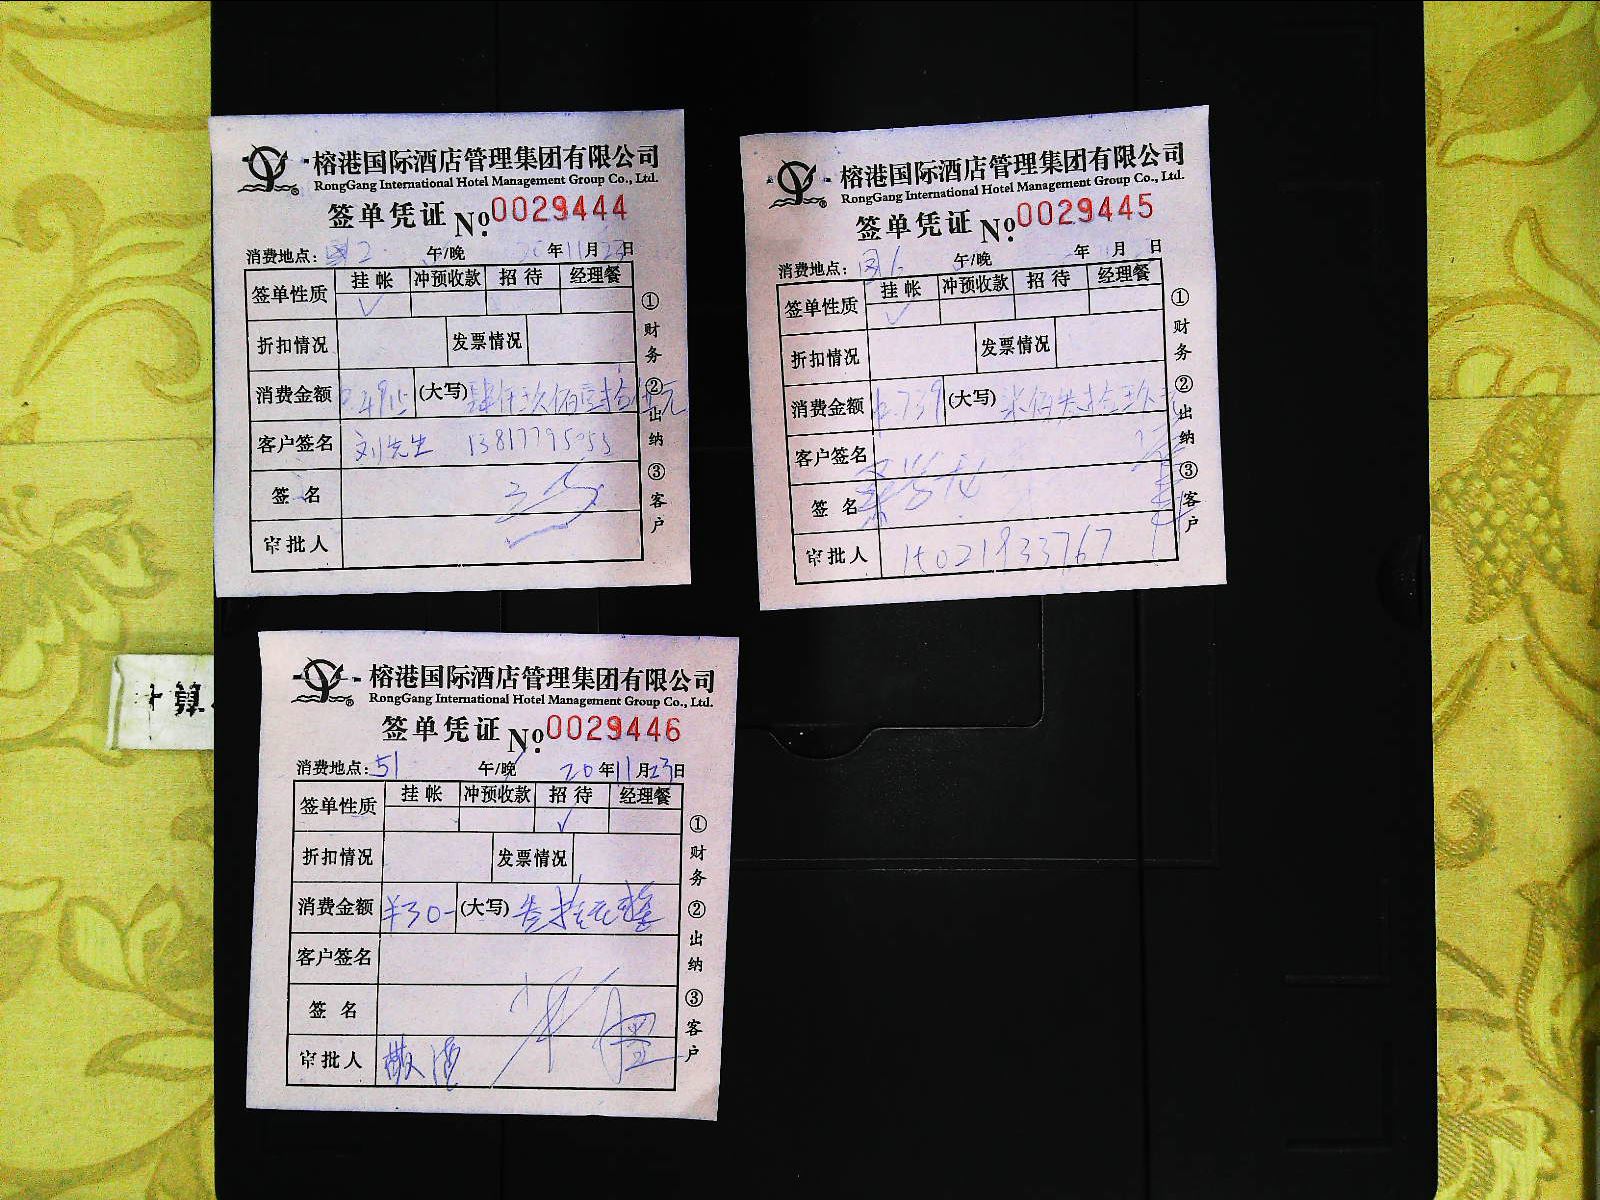 榕港国际酒店管理集团有限公司
RongGang International Hotel Management Group Co., Ltd.
签单凭证 No. 0029444
消费地点: 2 午/晚 20年11月23日
签单性质 挂帐 冲预收款 招待 经理餐
✓
折扣情况 发票情况
消费金额 4915 (大写) 肆仟玖佰壹拾 元
客户签名 刘先生
签名
审批人
①财务 ②出纳 ③客户
榕港国际酒店管理集团有限公司
RongGang International Hotel Management Group Co., Ltd.
签单凭证 No. 0029445
消费地点: 6 午/晚 年 月 日
签单性质 挂帐 冲预收款 招待 经理餐
✓
折扣情况 发票情况
消费金额 739 (大写)
客户签名
签名
审批人 15021933767
①财务 ②出纳 ③客户
榕港国际酒店管理集团有限公司
RongGang International Hotel Management Group Co., Ltd.
签单凭证 No. 0029446
消费地点: 51 午/晚 20年11月23日
签单性质 挂帐 冲预收款 招待 经理餐
✓
折扣情况 发票情况
消费金额 ¥30- (大写)
客户签名
签名
审批人 散酒
①财务 ②出纳 ③客户